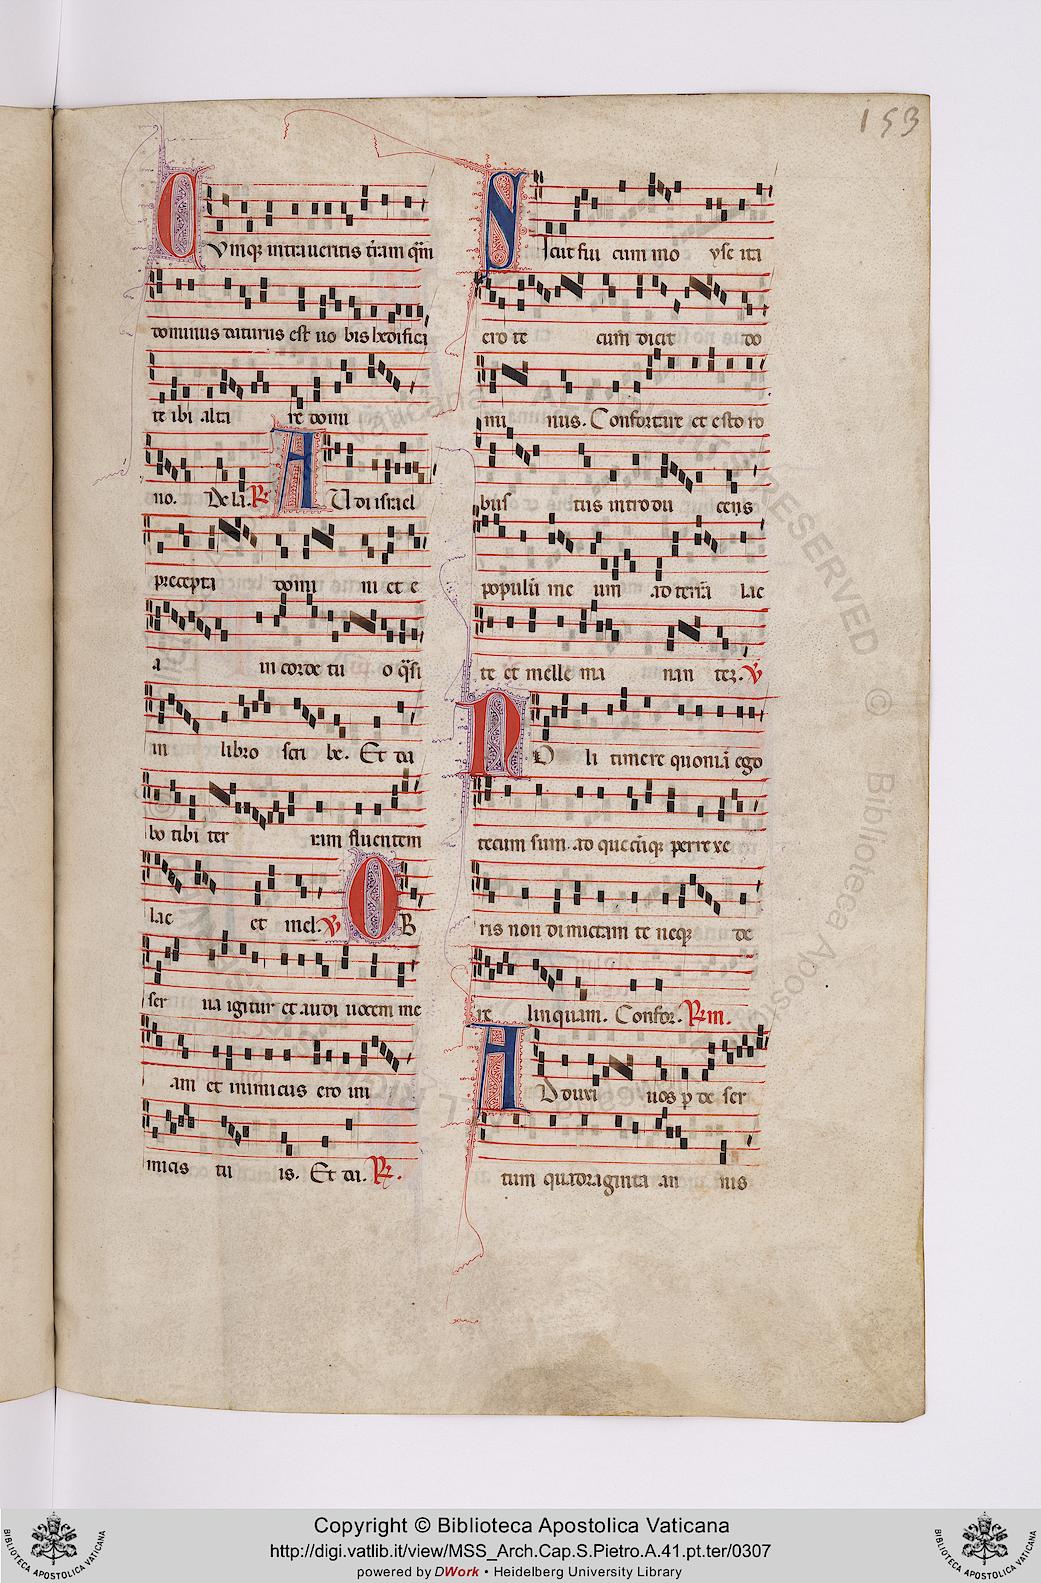 153
Cumque intraueritis t̄ram q̄m
dominus daturus est uo bis hedifica
te ibi alta re domi
no. De la. R AUdi israel
precepta domi ni et e
a in corde tu o q̄si
in libro scri be. Et da
bo tibi ter ram fluentem
lac et mel. V OB
ser ua igitur et audi uocem me
am et inimicus ero ini
micis tu is. Et da. R.
SIcut fui cum mo yse ita
ero te cum dicit do
mi nus. Confortare et esto ro
bus tus introdu cens
populū me um ad terrā lac
te et melle ma nan tez. V
NO li timere quoniā ego
tecum sum. ad quecūqꝫ perrexe
ris non dimictam te neqꝫ de
re linquam. Confor. Rm.
ADduxi uos p de ser
tum quadraginta an nis
RESERVED © Biblioteca Aposto
Copyright © Biblioteca Apostolica Vaticana
http://digi.vatlib.it/view/MSS_Arch.Cap.S.Pietro.A.41.pt.ter/0307
powered by DWork • Heidelberg University Library
BIBLIOTECA APOSTOLICA VATICANA
BIBLIOTECA APOSTOLICA VATICANA